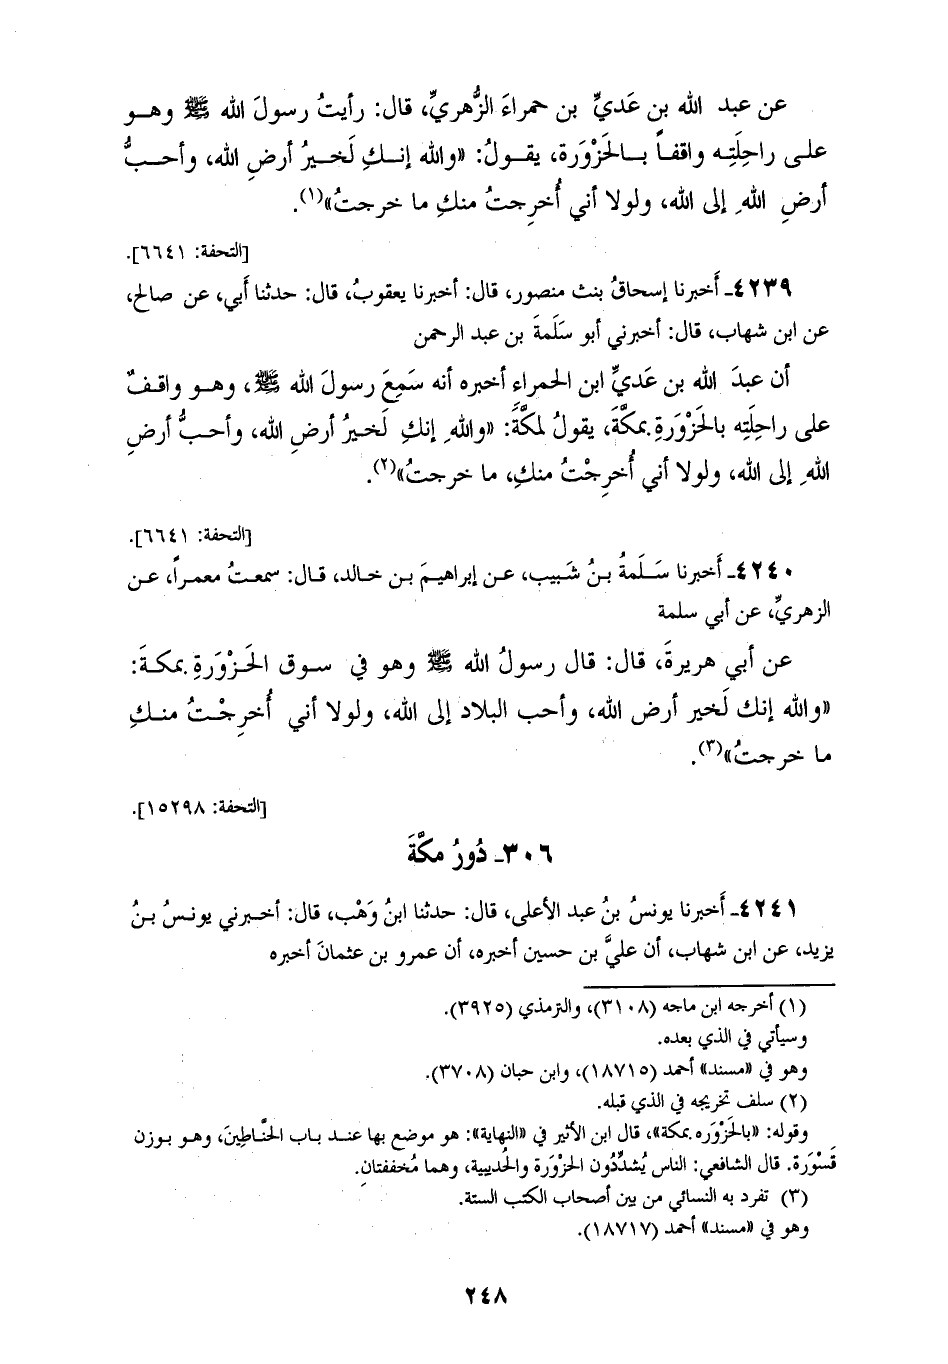 عن عبد الله بن عَديٍّ بن حمراءَ الزُّهريِّ، قال: رأيتُ رسولَ الله ﷺ وهو
على راحِلَتِه واقفاً بالحَزْوَرة، يقولُ: «والله إنكِ لَخيرُ أرضِ الله، وأحبُّ
أرضِ اللهِ إلى الله، ولولا أني أُخرِجتُ منكِ ما خرجتُ»(١).
[التحفة: ٦٦٤١].
٤٢٣٩ـ أَخبرنا إسحاقُ بنث منصور، قال: أخبرنا يعقوبُ، قال: حدثنا أَبي، عن صالح،
عن ابن شهاب، قال: أخبرني أبو سَلَمةَ بن عبد الرحمن
أن عبدَ الله بن عَديِّ ابن الحمراءِ أخبره أنه سَمِعَ رسولَ الله ﷺ، وهو واقفٌ
على راحِلَتِه بالحَزْوَرةِ بمكَّةَ، يقولُ لمكَّةَ: «واللهِ إنكِ لَخيرُ أرضِ الله، وأحبُّ أرضِ
اللهِ إلى الله، ولولا أني أُخرِجْتُ منكِ، ما خرجتُ»(٢).
[التحفة: ٦٦٤١].
٤٢٤٠ـ أَخبرنا سَلَمةُ بنُ شَبيب، عن إبراهيمَ بن خالد، قال: سمعتُ معمراً، عن
الزهريِّ، عن أبي سلمة
عن أبي هريرةَ، قال: قال رسولُ الله ﷺ وهو في سوق الحَزْوَرةِ بمكةَ:
«والله إنك لَخير أرض الله، وأحب البلاد إلى الله، ولولا أني أُخرِجْتُ منكِ
ما خرجتُ»(٣).
[التحفة: ١٥٢٩٨].
٣٠٦ـ دُورُ مكَّةَ
٤٢٤١ـ أَخبرنا يونسُ بنُ عبد الأعلى، قال: حدثنا ابنُ وَهْب، قال: أخبرني يونسُ بنُ
يزيد، عن ابن شهاب، أن عليَّ بن حسين أخبره، أن عمرو بن عثمانَ أخبره
(١) أخرجه ابن ماجه (٣١٠٨)، والترمذي (٣٩٢٥).
وسيأتي في الذي بعده.
وهو في «مسند» أحمد (١٨٧١٥)، وابن حبان (٣٧٠٨).
(٢) سلف تخريجه في الذي قبله.
وقوله: «بالحَزْوَره بمكة»، قال ابن الأثير في «النهاية»: هو موضع بها عند باب الحنَّاطِينَ، وهو بوزن
قَسْوَرة. قال الشافعي: الناس يُشدِّدُون الحزْوَرة والحُديبية، وهما مُخففتان.
(٣) تفرد به النسائي من بين أصحاب الكتب الستة.
وهو في «مسند» أحمد (١٨٧١٧).
٢٤٨